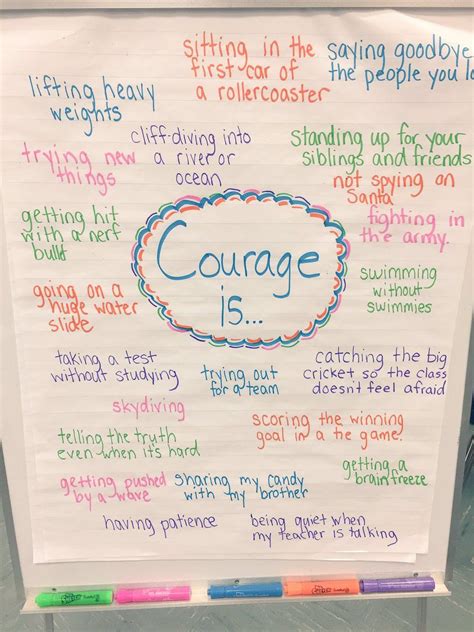 sitting in the
first car of
a rollercoaster
saying goodbye
the people you lo
lifting heavy
weights
cliff-diving into
a river or
ocean
standing up for your
siblings and friends
trying new
things
not spying on
Santa
getting hit
with a nerf
bullet
Courage
is...
fighting in
the army.
swimming
without
swimmies
going on a
huge water
slide
taking a test
without studying
trying out
for a team
catching the big
cricket so the class
doesn't feel afraid
skydiving
scoring the winning
goal in a tie game.
telling the truth
even when it's hard
getting a
brain freeze
getting pushed
by a wave
sharing my candy
with my brother
having patience
being quiet when
my teacher is talking